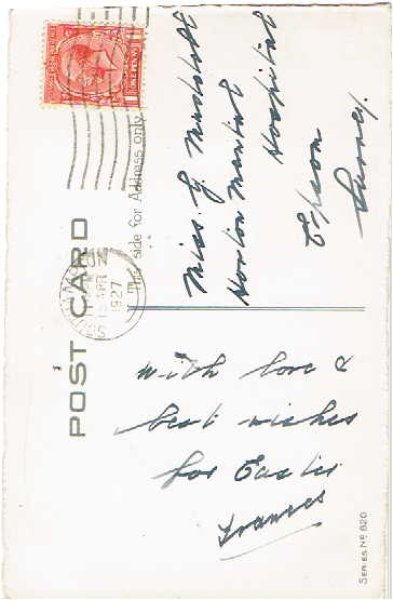 POST CARD
This side for Address only.
ONE PENNY
APR
1927
With love &
best wishes
for Easter
Frances
Miss. G.
Horton Mental
Hospital
Epsom
Surrey.
SERIES No 820